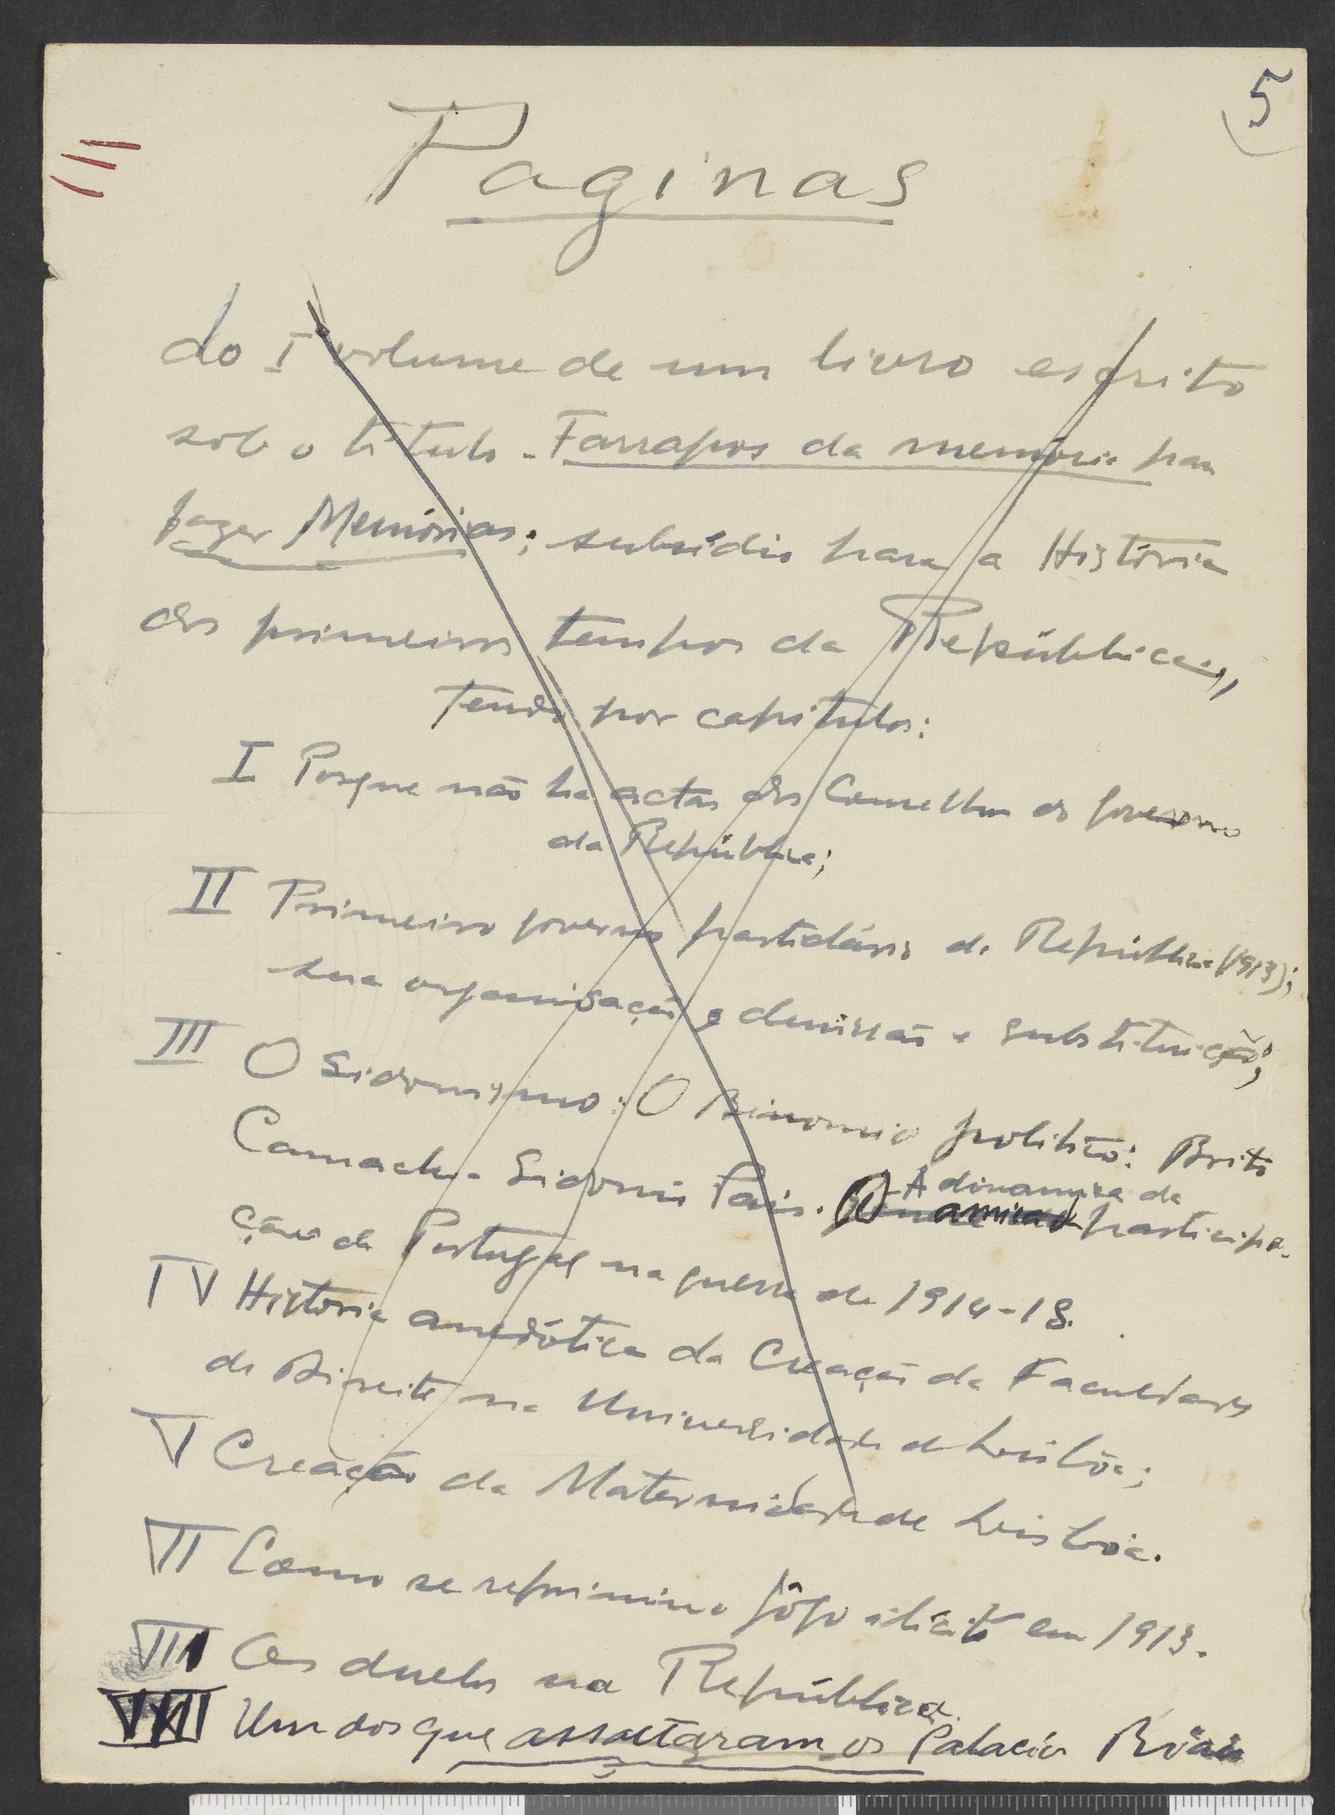 5
Paginas
do I volume de um livro escrito
sob o titulo - Farrapos da memória para
fazer Memórias; subsídio para a História
dos primeiros tempos da República,
tendo por capitulos:
I Porque não ha actas dos Conselhos do governo
da República;
II Primeiro governo partidário da República (1913);
sua organisação e demissão e substituição;
III O Sidonismo: O Binomio politico: Brito
Camacho - Sidonio Pais. A dinamica da participa-
ção de Portugal na guerra de 1914-18.
IV Historia anedótica da Creação da Faculdade
de Direito na Universidade de Lisbôa;
V Creação da Maternidade de Lisbôa.
VI Como se reprimiu o jôgo ilicito em 1913.
VII Os duelos na República.
VIII Um dos que assaltaram os Palacios